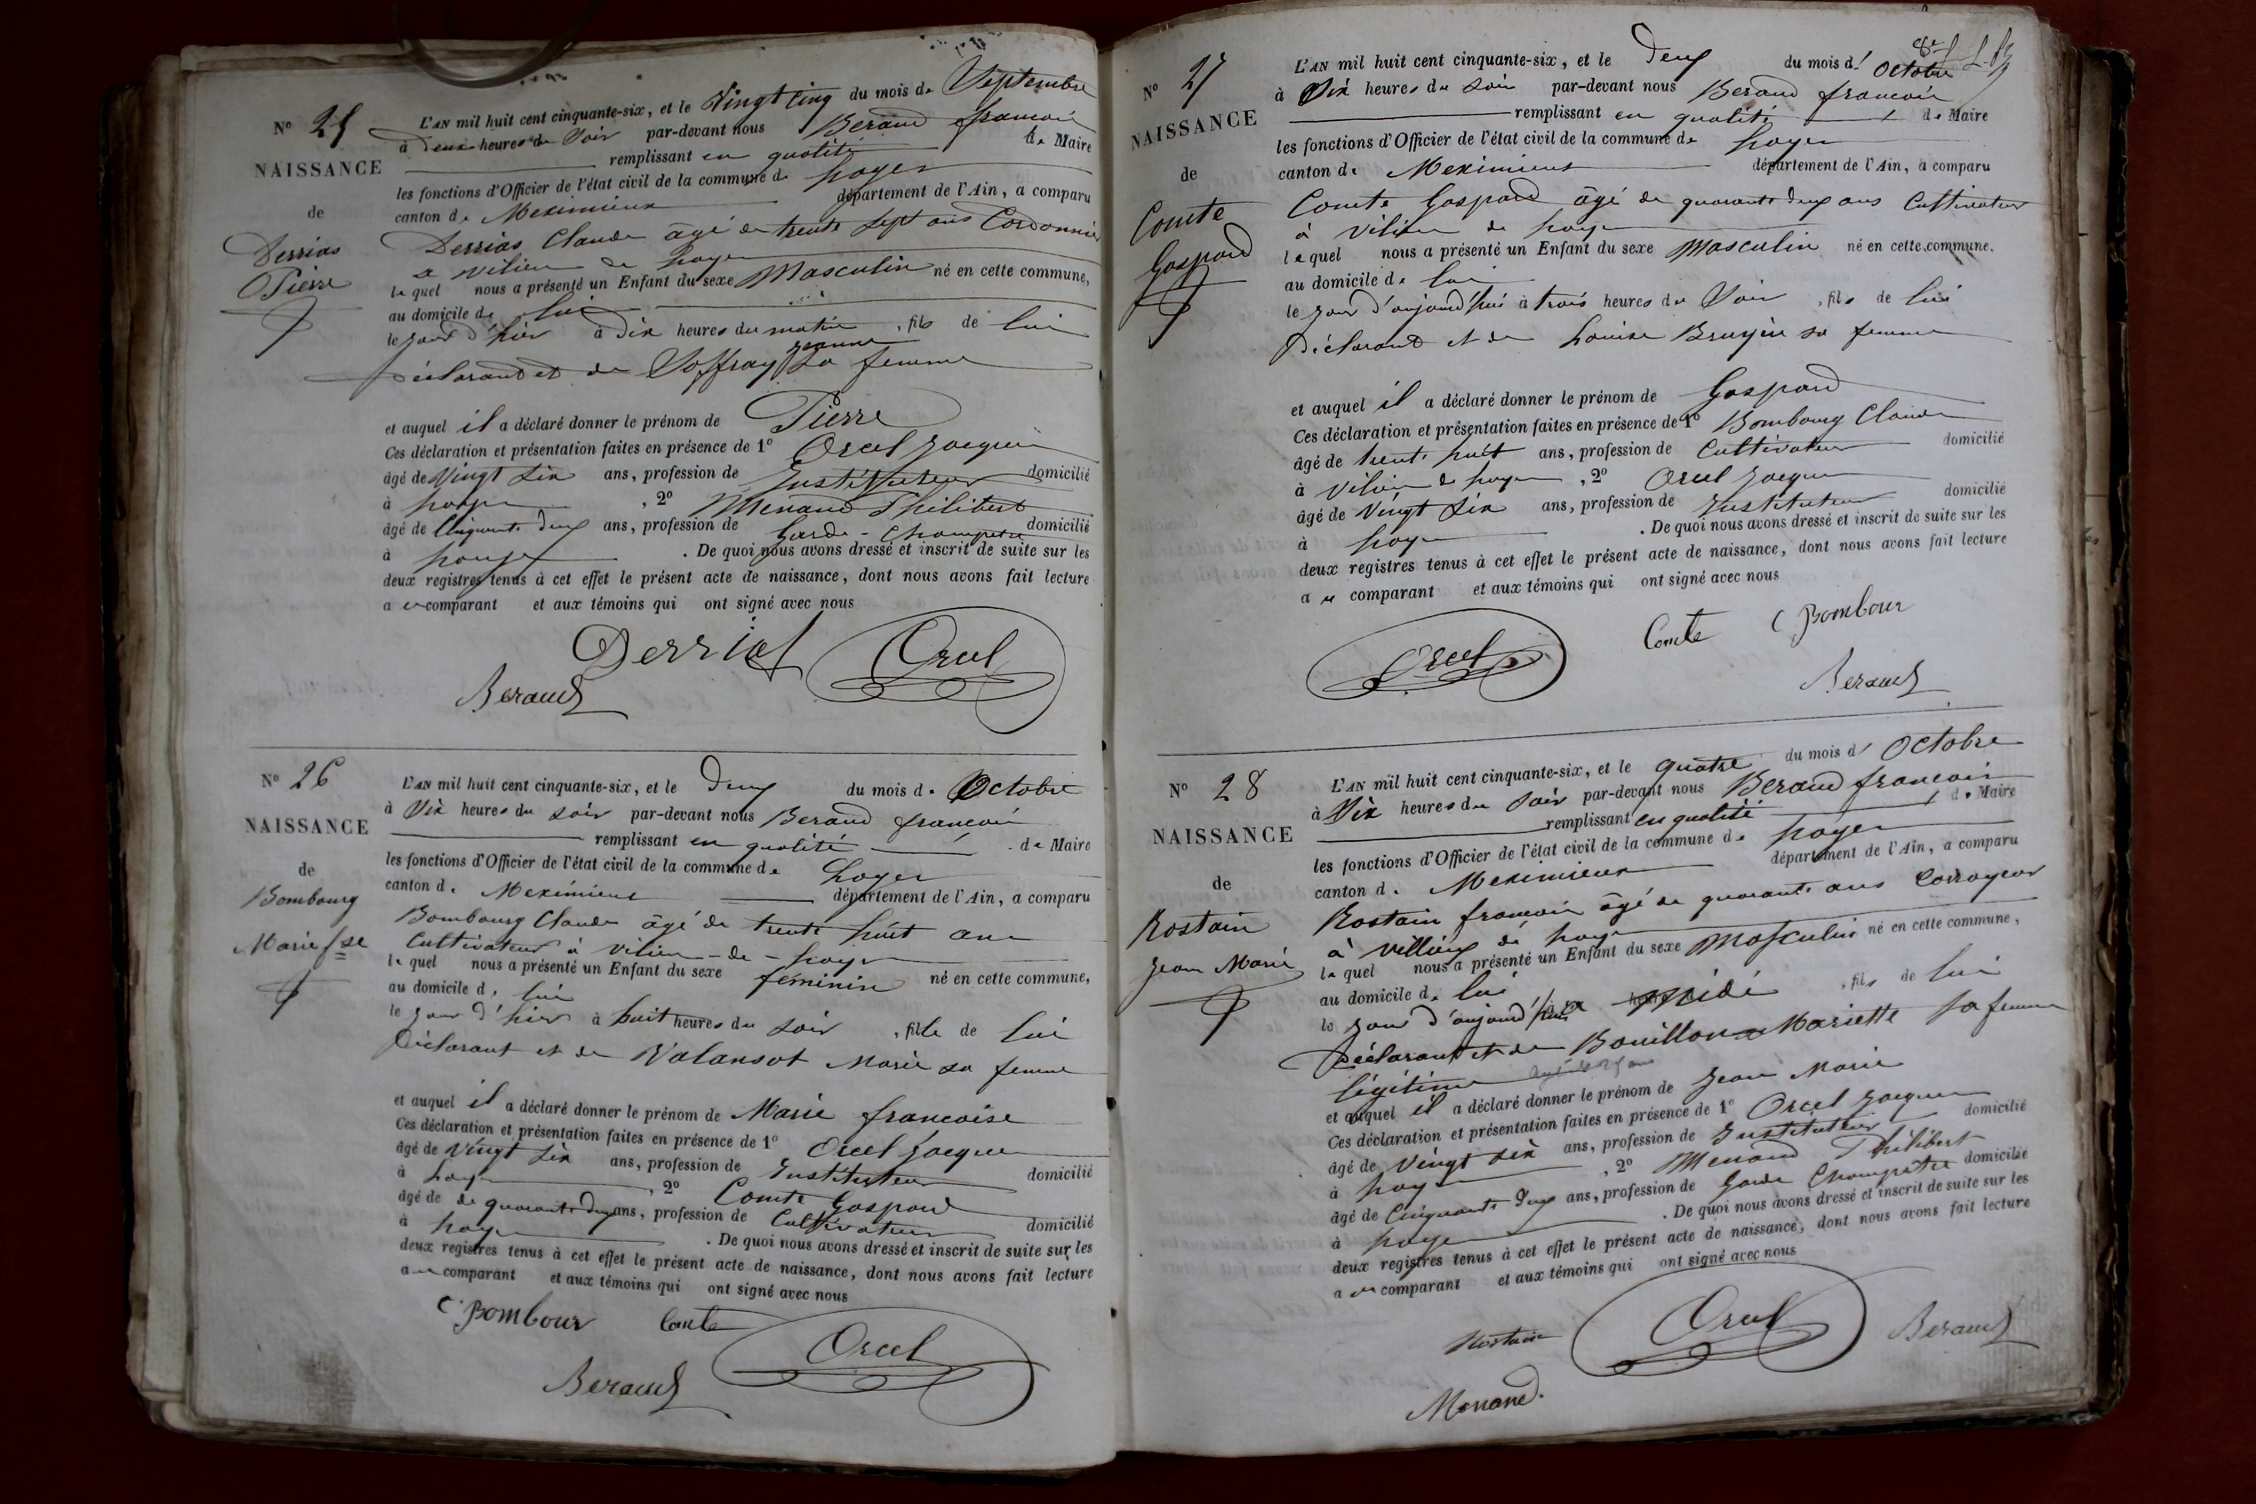 N° 25
NAISSANCE
de
Derrias
Pierre
L'AN mil huit cent cinquante-six, et le Vingt cinq du mois de Septembre
à Deux heures du Soir par-devant nous Beraud francois
remplissant en qualité de Maire
les fonctions d'Officier de l'état civil de la commune de Loyes
canton de Meximieux département de l'Ain, a comparu
Derrias Claude âgé de trente sept ans Cordonnier
a vilieu de Loyes
lequel nous a présenté un Enfant du sexe Masculin né en cette commune,
au domicile de lui
le jour d'hier à Dix heures du matin, fils de lui
Déclarant et de Soffray Jeanne sa femme
et auquel il a déclaré donner le prénom de Pierre
Ces déclaration et présentation faites en présence de 1° Orcel Jacques
âgé de Vingt Six ans, profession de Instituteur domicilié
à Loyes, 2° Menand Philibert
âgé de Cinquante Deux ans, profession de Garde-Champetre domicilié
à Loyes. De quoi nous avons dressé et inscrit de suite sur les
deux registres tenus à cet effet le présent acte de naissance, dont nous avons fait lecture
a u comparant et aux témoins qui ont signé avec nous
Derrias Orcel
Beraud
N° 26
NAISSANCE
de
Bombourg
Marie fse
L'AN mil huit cent cinquante-six, et le Deux du mois de Octobre
à Six heures du soir par-devant nous Beraud francois
remplissant en qualité de Maire
les fonctions d'Officier de l'état civil de la commune de Loyes
canton de Meximieux département de l'Ain, a comparu
Bombourg Claude âgé de trente huit ans
Cultivateur à vilieu-de-Loyes
lequel nous a présenté un Enfant du sexe féminin né en cette commune,
au domicile de lui
le jour d'hier à huit heures du soir, fille de lui
Déclarant et de Valansot Marie sa femme
et auquel il a déclaré donner le prénom de Marie francoise
Ces déclaration et présentation faites en présence de 1° Orcel Jacques
âgé de Vingt Six ans, profession de Instituteur domicilié
à Loyes, 2° Comte Gaspard
âgé de de quarante deux ans, profession de Cultivateur domicilié
à Loyes. De quoi nous avons dressé et inscrit de suite sur les
deux registres tenus à cet effet le présent acte de naissance, dont nous avons fait lecture
a u comparant et aux témoins qui ont signé avec nous
C Bombour Comte
Orcel
Beraud
N° 27
NAISSANCE
de
Comte
Gaspard
L'AN mil huit cent cinquante-six, et le Deux du mois d' Octobre
à Six heures du soir par-devant nous Beraud francois
remplissant en qualité de Maire
les fonctions d'Officier de l'état civil de la commune de Loyes
canton de Meximieux département de l'Ain, a comparu
Comte Gaspard âgé de quarante deux ans Cultivateur
à Vilieu de Loyes
lequel nous a présenté un Enfant du sexe Masculin né en cette commune.
au domicile de lui
le jour d'aujourd'hui à trois heures du Soir, fils de lui
Déclarant et de Louise Bruyère sa femme
et auquel il a déclaré donner le prénom de Gaspard
Ces déclaration et présentation faites en présence de 1° Bombourg Claude
âgé de trente huit ans, profession de Cultivateur domicilié
à Vilieu de Loyes, 2° Orcel Jacques
âgé de Vingt Six ans, profession de Instituteur domicilié
à Loyes. De quoi nous avons dressé et inscrit de suite sur les
deux registres tenus à cet effet le présent acte de naissance, dont nous avons fait lecture
a u comparant et aux témoins qui ont signé avec nous
Comte C Bombour
Orcel
Beraud
N° 28
NAISSANCE
de
Rostain
Jean Marie
L'AN mil huit cent cinquante-six, et le quatre du mois d' Octobre
à Six heures du Soir par-devant nous Beraud francois
remplissant en qualité de Maire
les fonctions d'Officier de l'état civil de la commune de Loyes
canton de Meximieux département de l'Ain, a comparu
Rostain francois âgé de quarante ans Corroyeur
à villieux de Loyes
lequel nous a présenté un Enfant du sexe Masculin né en cette commune,
au domicile de lui
le jour d'aujourd'hui à midi, fils de lui
Déclarant et de Bouillon Mariette sa femme
légitime
et auquel il a déclaré donner le prénom de Jean Marie
Ces déclaration et présentation faites en présence de 1° Orcel Jacques
âgé de Vingt Six ans, profession de Instituteur domicilié
à Loyes, 2° Menand Philibert
âgé de Cinquante Deux ans, profession de Garde Champetre domicilié
à Loyes. De quoi nous avons dressé et inscrit de suite sur les
deux registres tenus à cet effet le présent acte de naissance, dont nous avons fait lecture
a u comparant et aux témoins qui ont signé avec nous
Rostain Orcel Beraud
Menand.